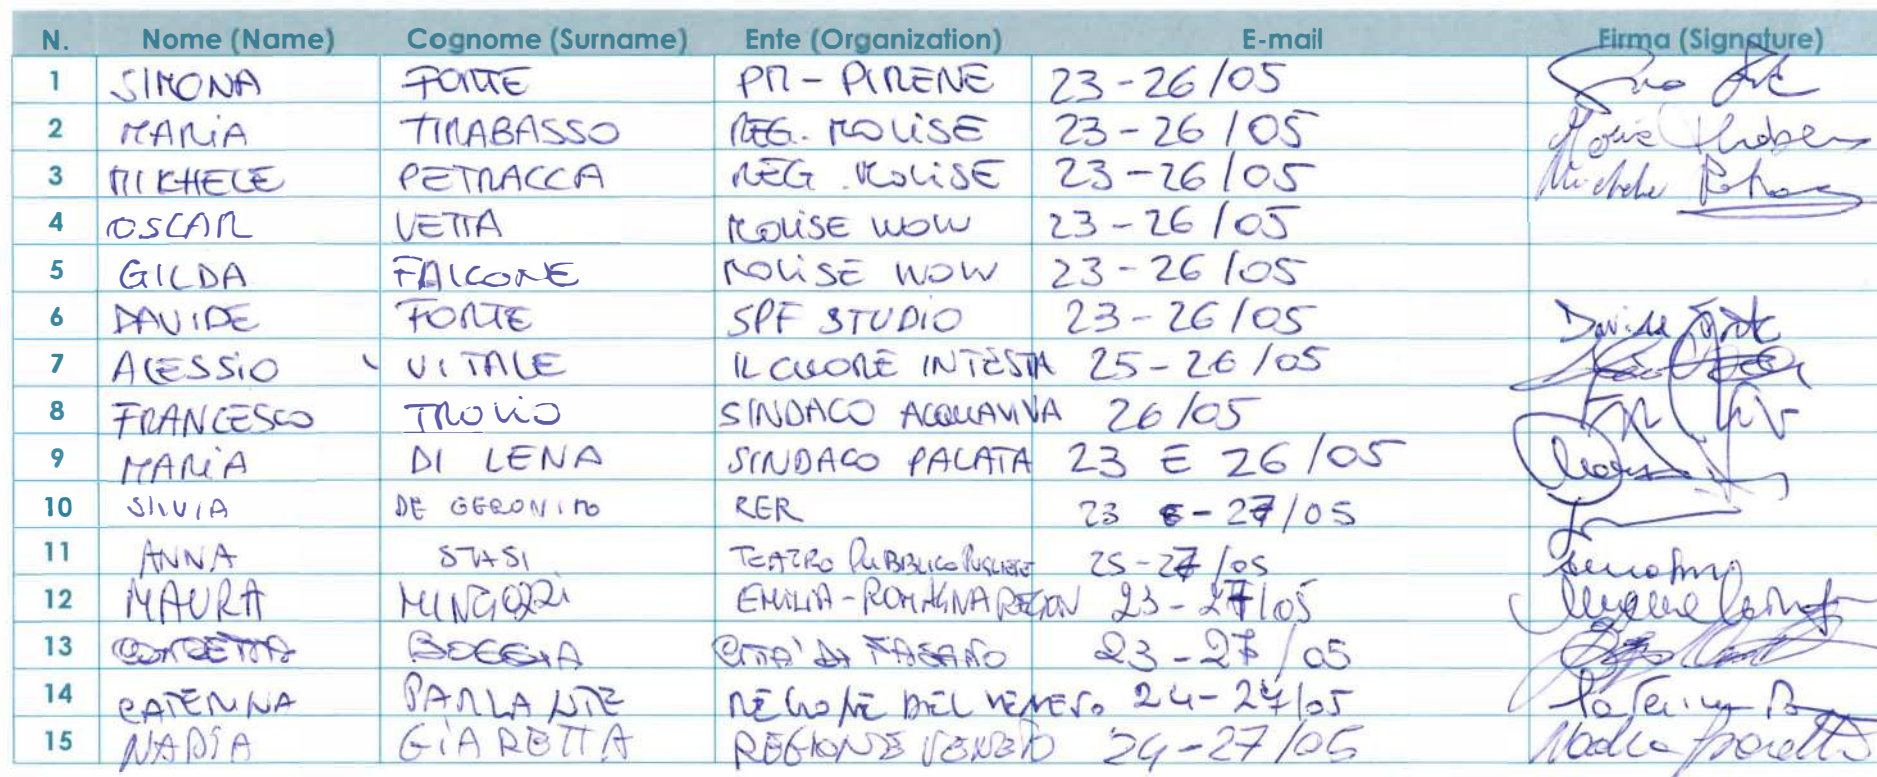 N. Nome (Name) Cognome (Surname) Ente (Organization) E-mail Firma (Signature)
1 SIMONA FORTE PM - PIRENE 23-26/05
2 MARIA TIRABASSO REG. MOLISE 23-26/05 Maria
3 MICHELE PETRACCA REG. MOLISE 23-26/05 Michele
4 OSCAR VETTA MOLISE WOW 23-26/05
5 GILDA FALCONE MOLISE WOW 23-26/05
6 DAVIDE FORTE SPF STUDIO 23-26/05 Davide Forte
7 ALESSIO VITALE IL CUORE IN TESTA 25-26/05
8 FRANCESCO TROLIO SINDACO ACQUAVIVA 26/05
9 MARIA DI LENA SINDACO PALATA 23 E 26/05
10 SILVIA DE GERONIMO RER 23 - 27/05
11 ANNA STASI TEATRO PUBBLICO PUGLIESE 25-27/05
12 MAURA MINGOZZI EMILIA-ROMAGNA REGION 23-27/05
13 CONCETTA BOGGIA CITTA' DI FASANO 23-27/05
14 CATERINA PARLANTE REGIONE DEL VENETO 24-27/05 Caterina
15 NADIA GIARETTA REGIONE VENETO 24-27/05 Nadia Giaretta